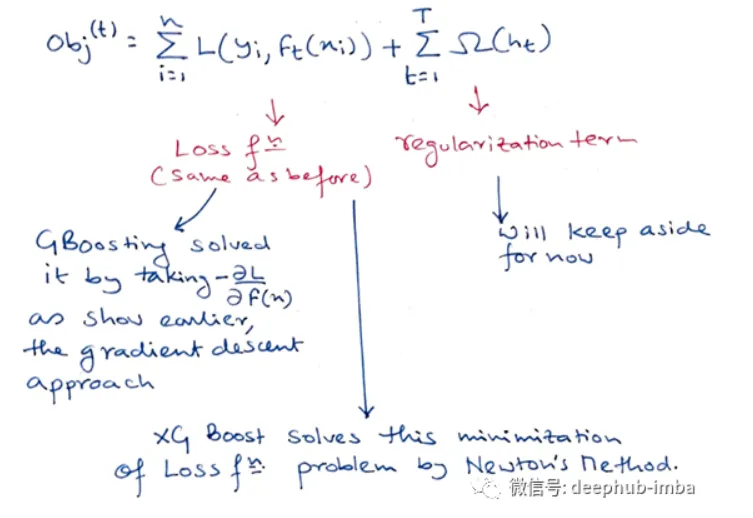 Obj^(t) = Σ_{i=1}^{n} L(y_i, F_t(x_i)) + Σ_{t=1}^{T} Ω(h_t)
Loss fn
(Same as before)
regularization term
GBoosting solved
it by taking -∂L/∂F(x)
as show earlier,
the gradient descent
approach
will keep aside
for now
XG Boost solves this minimization
of Loss fn problem by Newton's Method.
微信号: deephub-imba